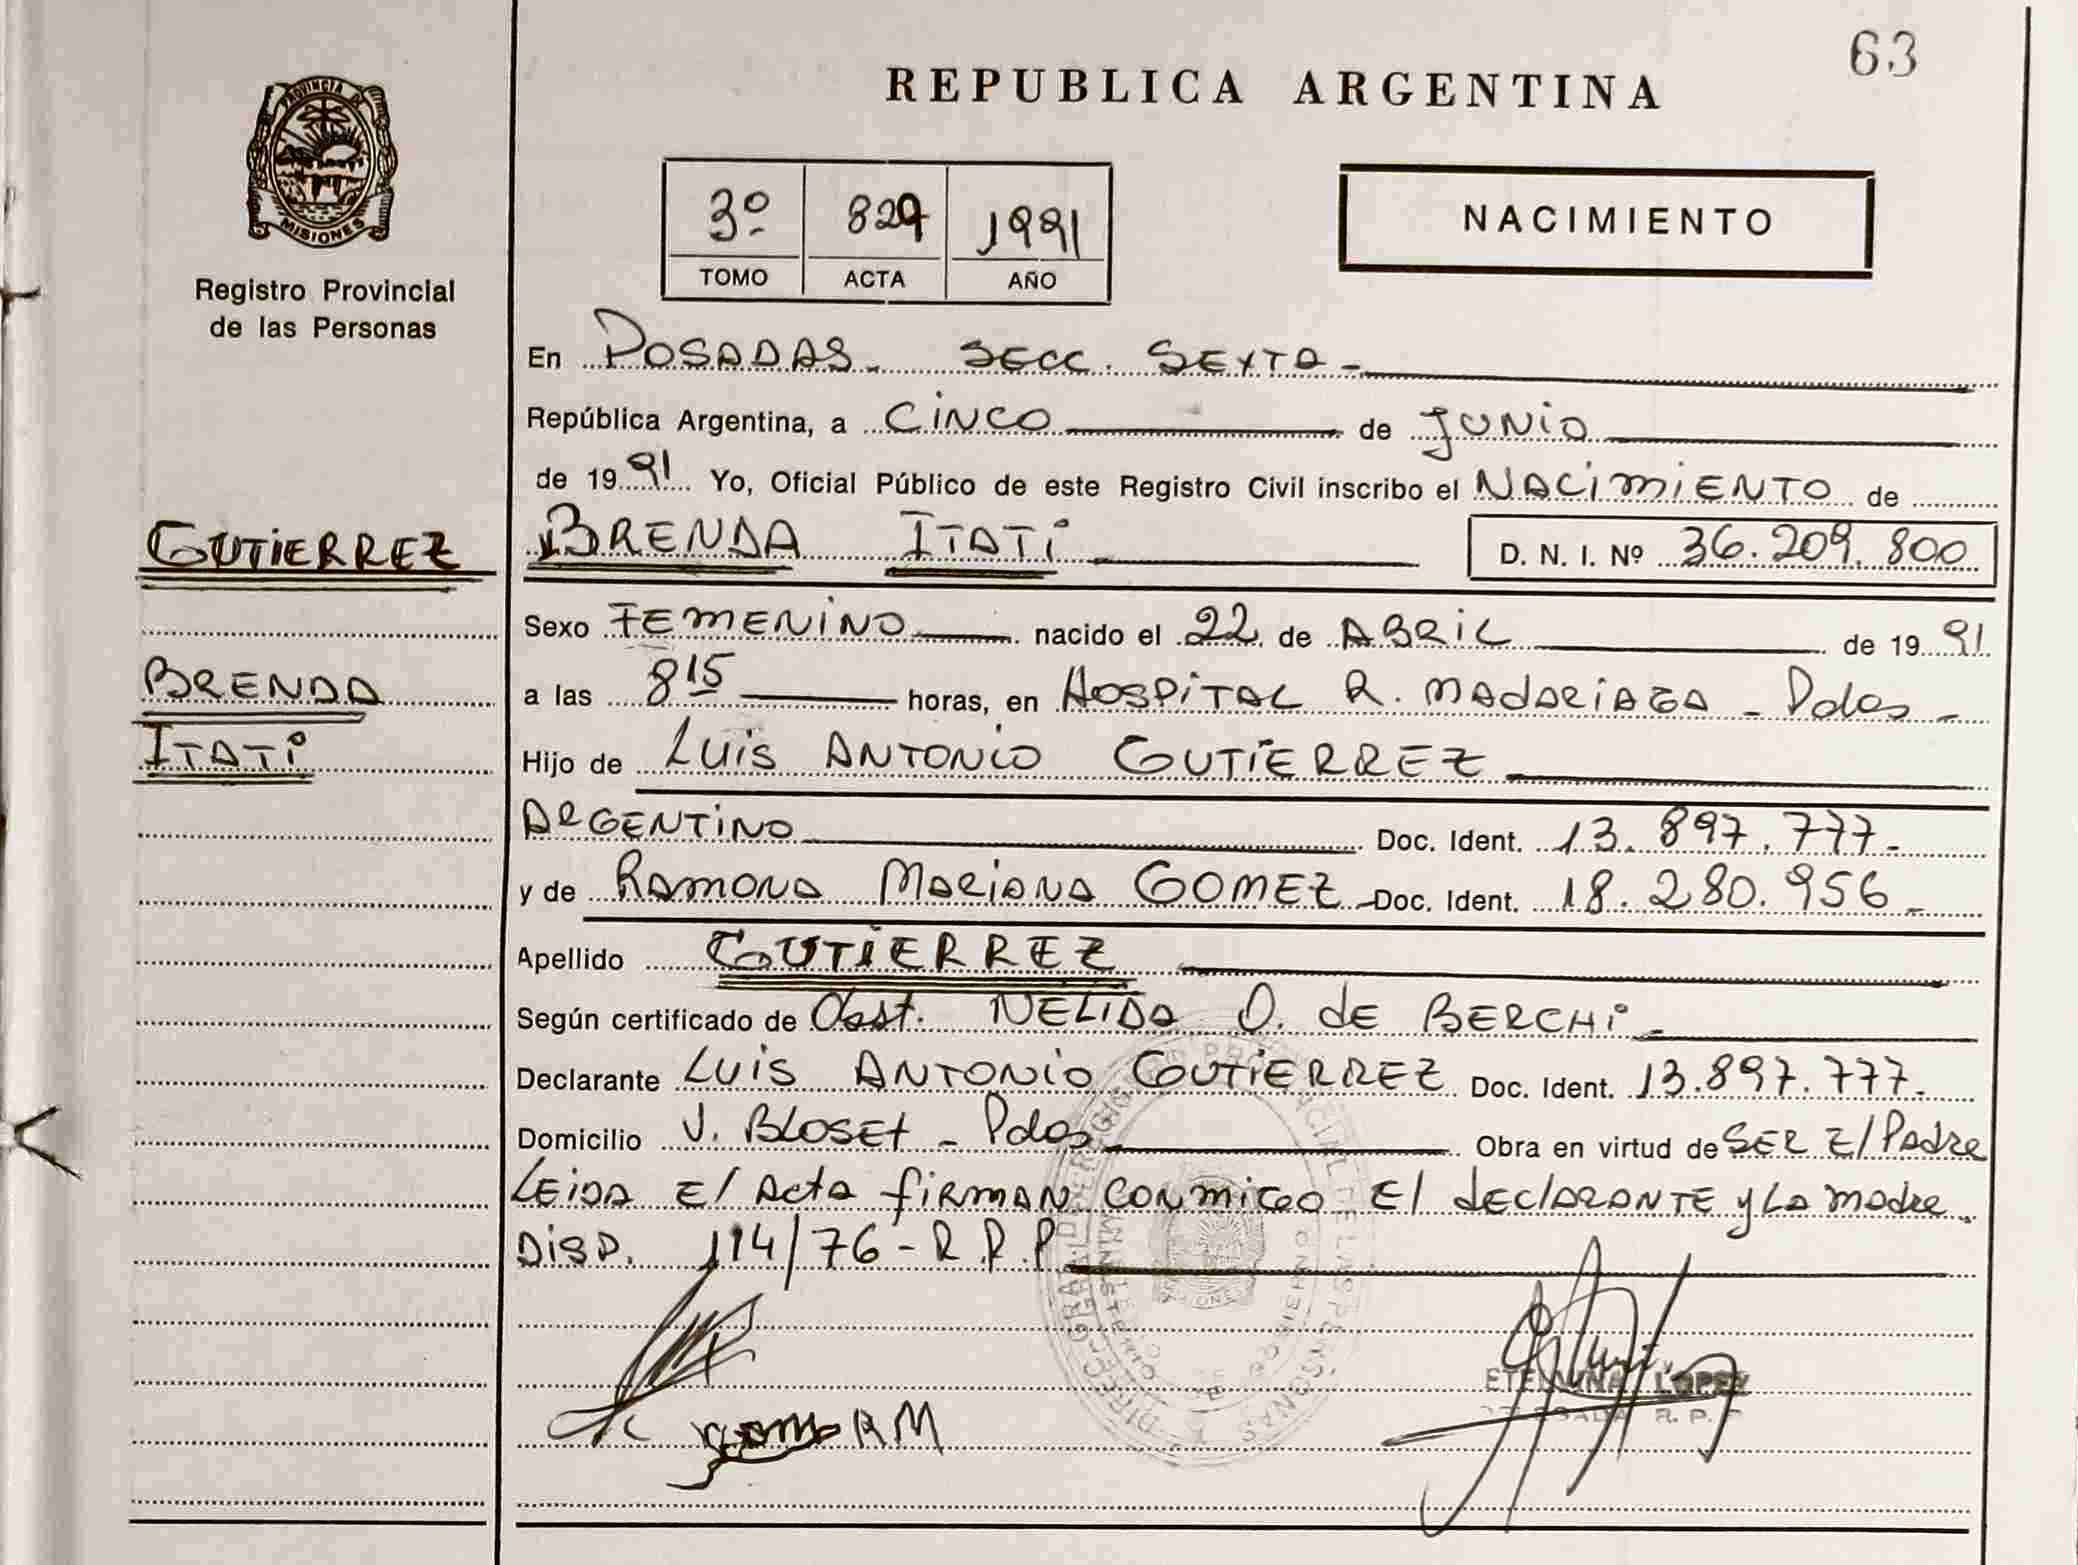 63
REPUBLICA ARGENTINA
PROVINCIA DE
MISIONES
Registro Provincial
de las Personas
3º 829 1991
TOMO ACTA AÑO
NACIMIENTO
En POSADAS. SECC. SEXTA -
República Argentina, a CINCO de JUNIO
de 1991 Yo, Oficial Público de este Registro Civil inscribo el NACIMIENTO de
GUTIERREZ
BRENDA ITATI D. N. I. Nº 36.209.800
Sexo FEMENINO nacido el 22 de ABRIL de 1991
BRENDA
ITATI
a las 8 15 horas, en HOSPITAL R. MADARIAGA - Pdas -
Hijo de LUIS ANTONIO GUTIERREZ
ARGENTINO Doc. Ident. 13.897.777-
y de RAMONA MARIANA GOMEZ Doc. Ident. 18.280.956-
Apellido GUTIERREZ
Según certificado de Obst. NELIDA O. de BERCHI -
Declarante LUIS ANTONIO GUTIERREZ Doc. Ident. 13.897.777.
Domicilio V. BLOSET - Pdas Obra en virtud de SER El Padre
LEIDA El Acta FIRMAN CONMIGO El declARANTE y LA madre.
DISP. 114/76 - R.P.P
R M
LOPEZ